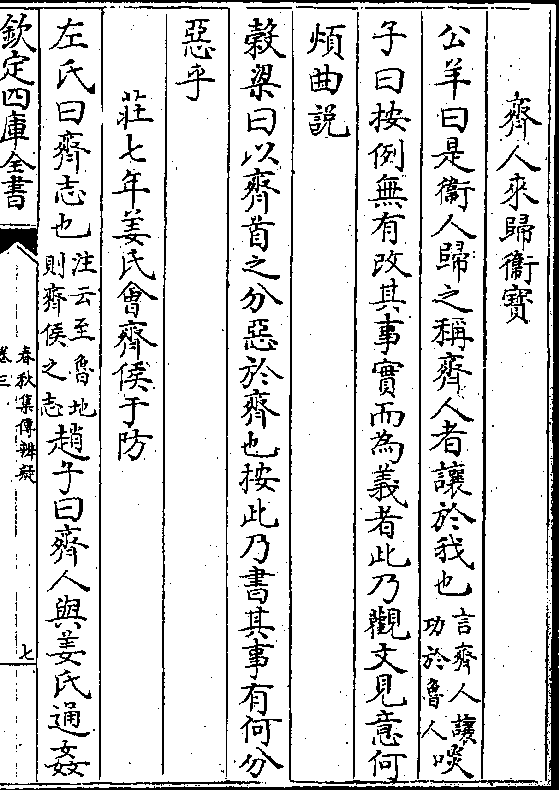 齊人來歸衞寶
公羊曰是衞人歸之稱齊人者讓於我也言齊人讓功於魯人啖
子曰按例無有改其事實而為義者此乃觀文見意何
煩曲說
榖梁曰以齊首之分惡於齊也按此乃書其事有何分
惡乎
莊七年姜氏會齊侯于防
左氏曰齊志也注云至魯地則齊侯之志趙子曰齊人與姜氏通姦
欽定四庫全書
春秋集傳辨疑
卷三
七